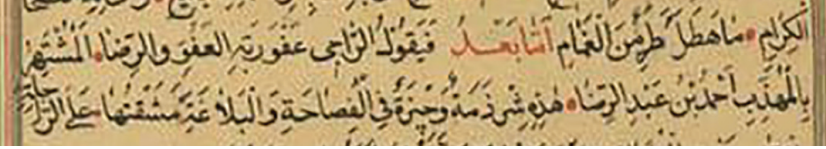 الكِرَامِ مَا هَطَلَ طَرٌ مِنَ الغَمَامِ أَمَّا بَعْدُ فَيَقُولُ الرَّاجِي عَفْوَ رَبِّهِ العَفُوِّ وَالرِّضَا المُشْتَهِرُ
بِالْمُهَذِّبِ أَحْمَدُ بْنُ عَبْدِ الرِّضَا هٰذِهِ شِرْذِمَةٌ وَجِيزَةٌ فِي الْفَصَاحَةِ وَالْبَلَاغَةِ مَشَقْتُهَا عَلَى